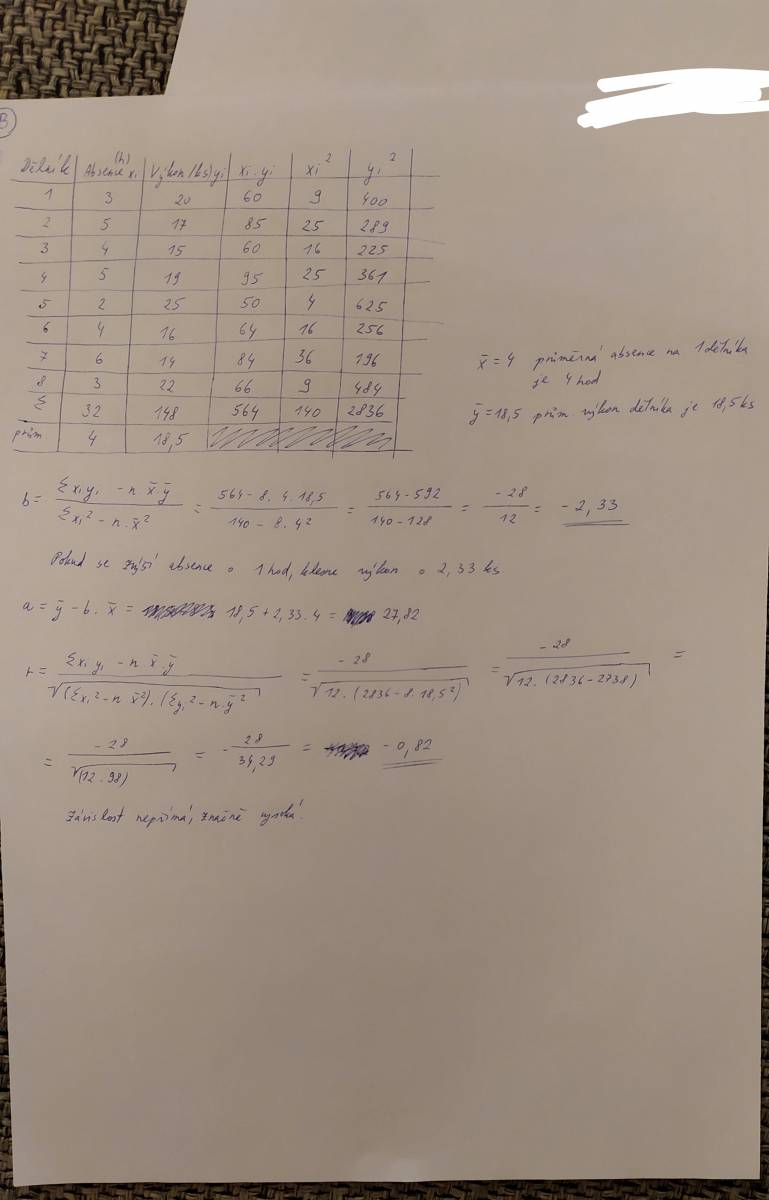 B
Dělník | Absence (h) xi | Výkon (ks) yi | xi . yi | xi² | yi²
1 | 3 | 20 | 60 | 9 | 400
2 | 5 | 17 | 85 | 25 | 289
3 | 4 | 15 | 60 | 16 | 225
4 | 5 | 19 | 95 | 25 | 361
5 | 2 | 25 | 50 | 4 | 625
6 | 4 | 16 | 64 | 16 | 256
7 | 6 | 14 | 84 | 36 | 196
8 | 3 | 22 | 66 | 9 | 484
Σ | 32 | 148 | 564 | 140 | 2836
prům | 4 | 18,5
x̄ = 4 průměrná absence na 1 dělníka
je 4 hod
ȳ = 18,5 prům výkon dělníka je 18,5 ks
b = (Σ xi yi - n . x̄ . ȳ) / (Σ xi² - n . x̄²) = (564 - 8 . 4 . 18,5) / (140 - 8 . 4²) = (564 - 592) / (140 - 128) = -28 / 12 = -2,33
Pokud se zvýší absence o 1 hod, klesne výkon o 2,33 ks
a = ȳ - b . x̄ = 18,5 + 2,33 . 4 = 27,82
r = (Σ xi yi - n x̄ ȳ) / √(Σ xi² - n x̄²) . (Σ yi² - n . ȳ² = -28 / √12 . (2836 - 8 . 18,5²) = -28 / √12 . (2836 - 2738) =
= -28 / √(12 . 98) = - 28 / 34,29 = - 0,82
Závislost nepřímá, značně vysoká.